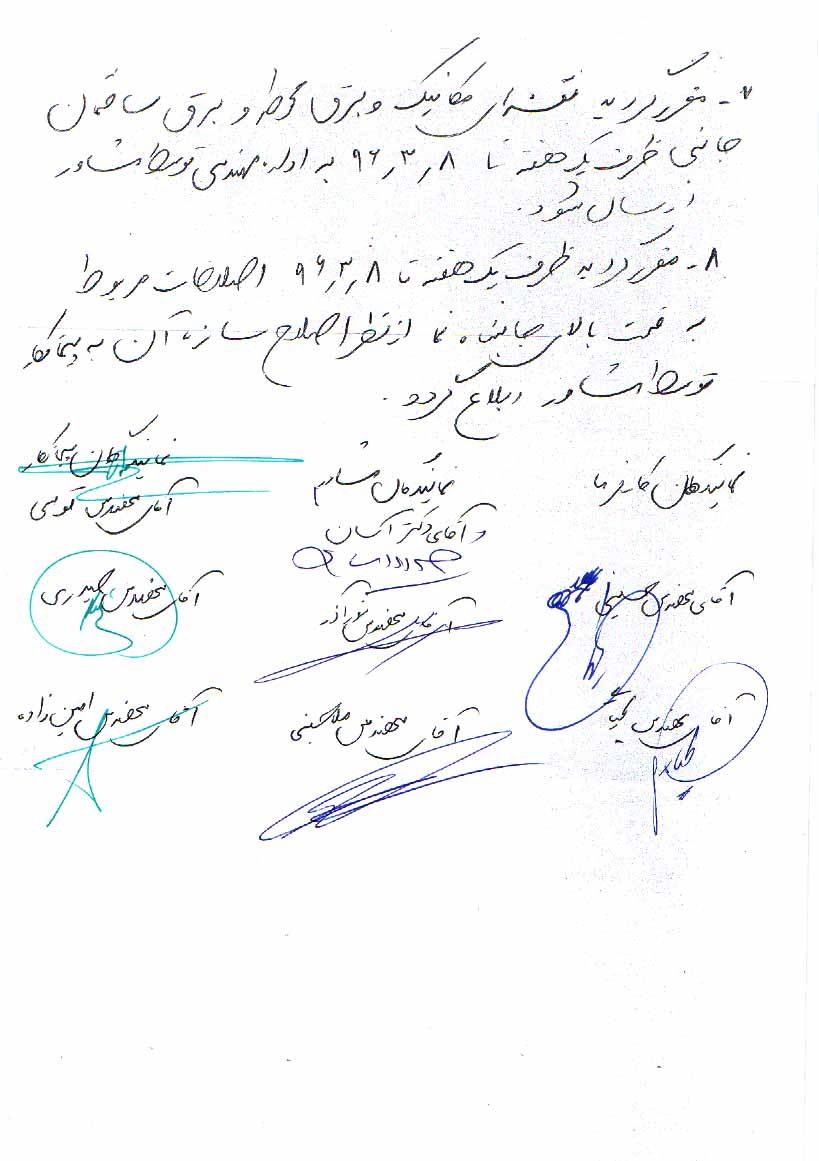 ۷- مقرر گردید نقشه‌های مکانیک و برق محوطه و برق ساختمان
جانبی ظرف یک هفته تا ۹۶٫۳٫۸ به اداره مهندسی توسط مشاور
ارسال شود.
۸- مقرر گردید ظرف یک هفته تا ۹۶٫۳٫۸ اصلاحات مربوط
به قسمت بالای جان‌پناه نما از نظر اصلاح سازه آن به پیمانکار
توسط مشاور ابلاغ گردد.
نمایندگان کارفرما
نمایندگان مشاور
نمایندگان پیمانکار
آقای مهندس
آقای دکتر
آقای مهندس حسینی
آقای مهندس
آقای مهندس حیدری
آقای مهندس
آقای مهندس
آقای مهندس امین زاده